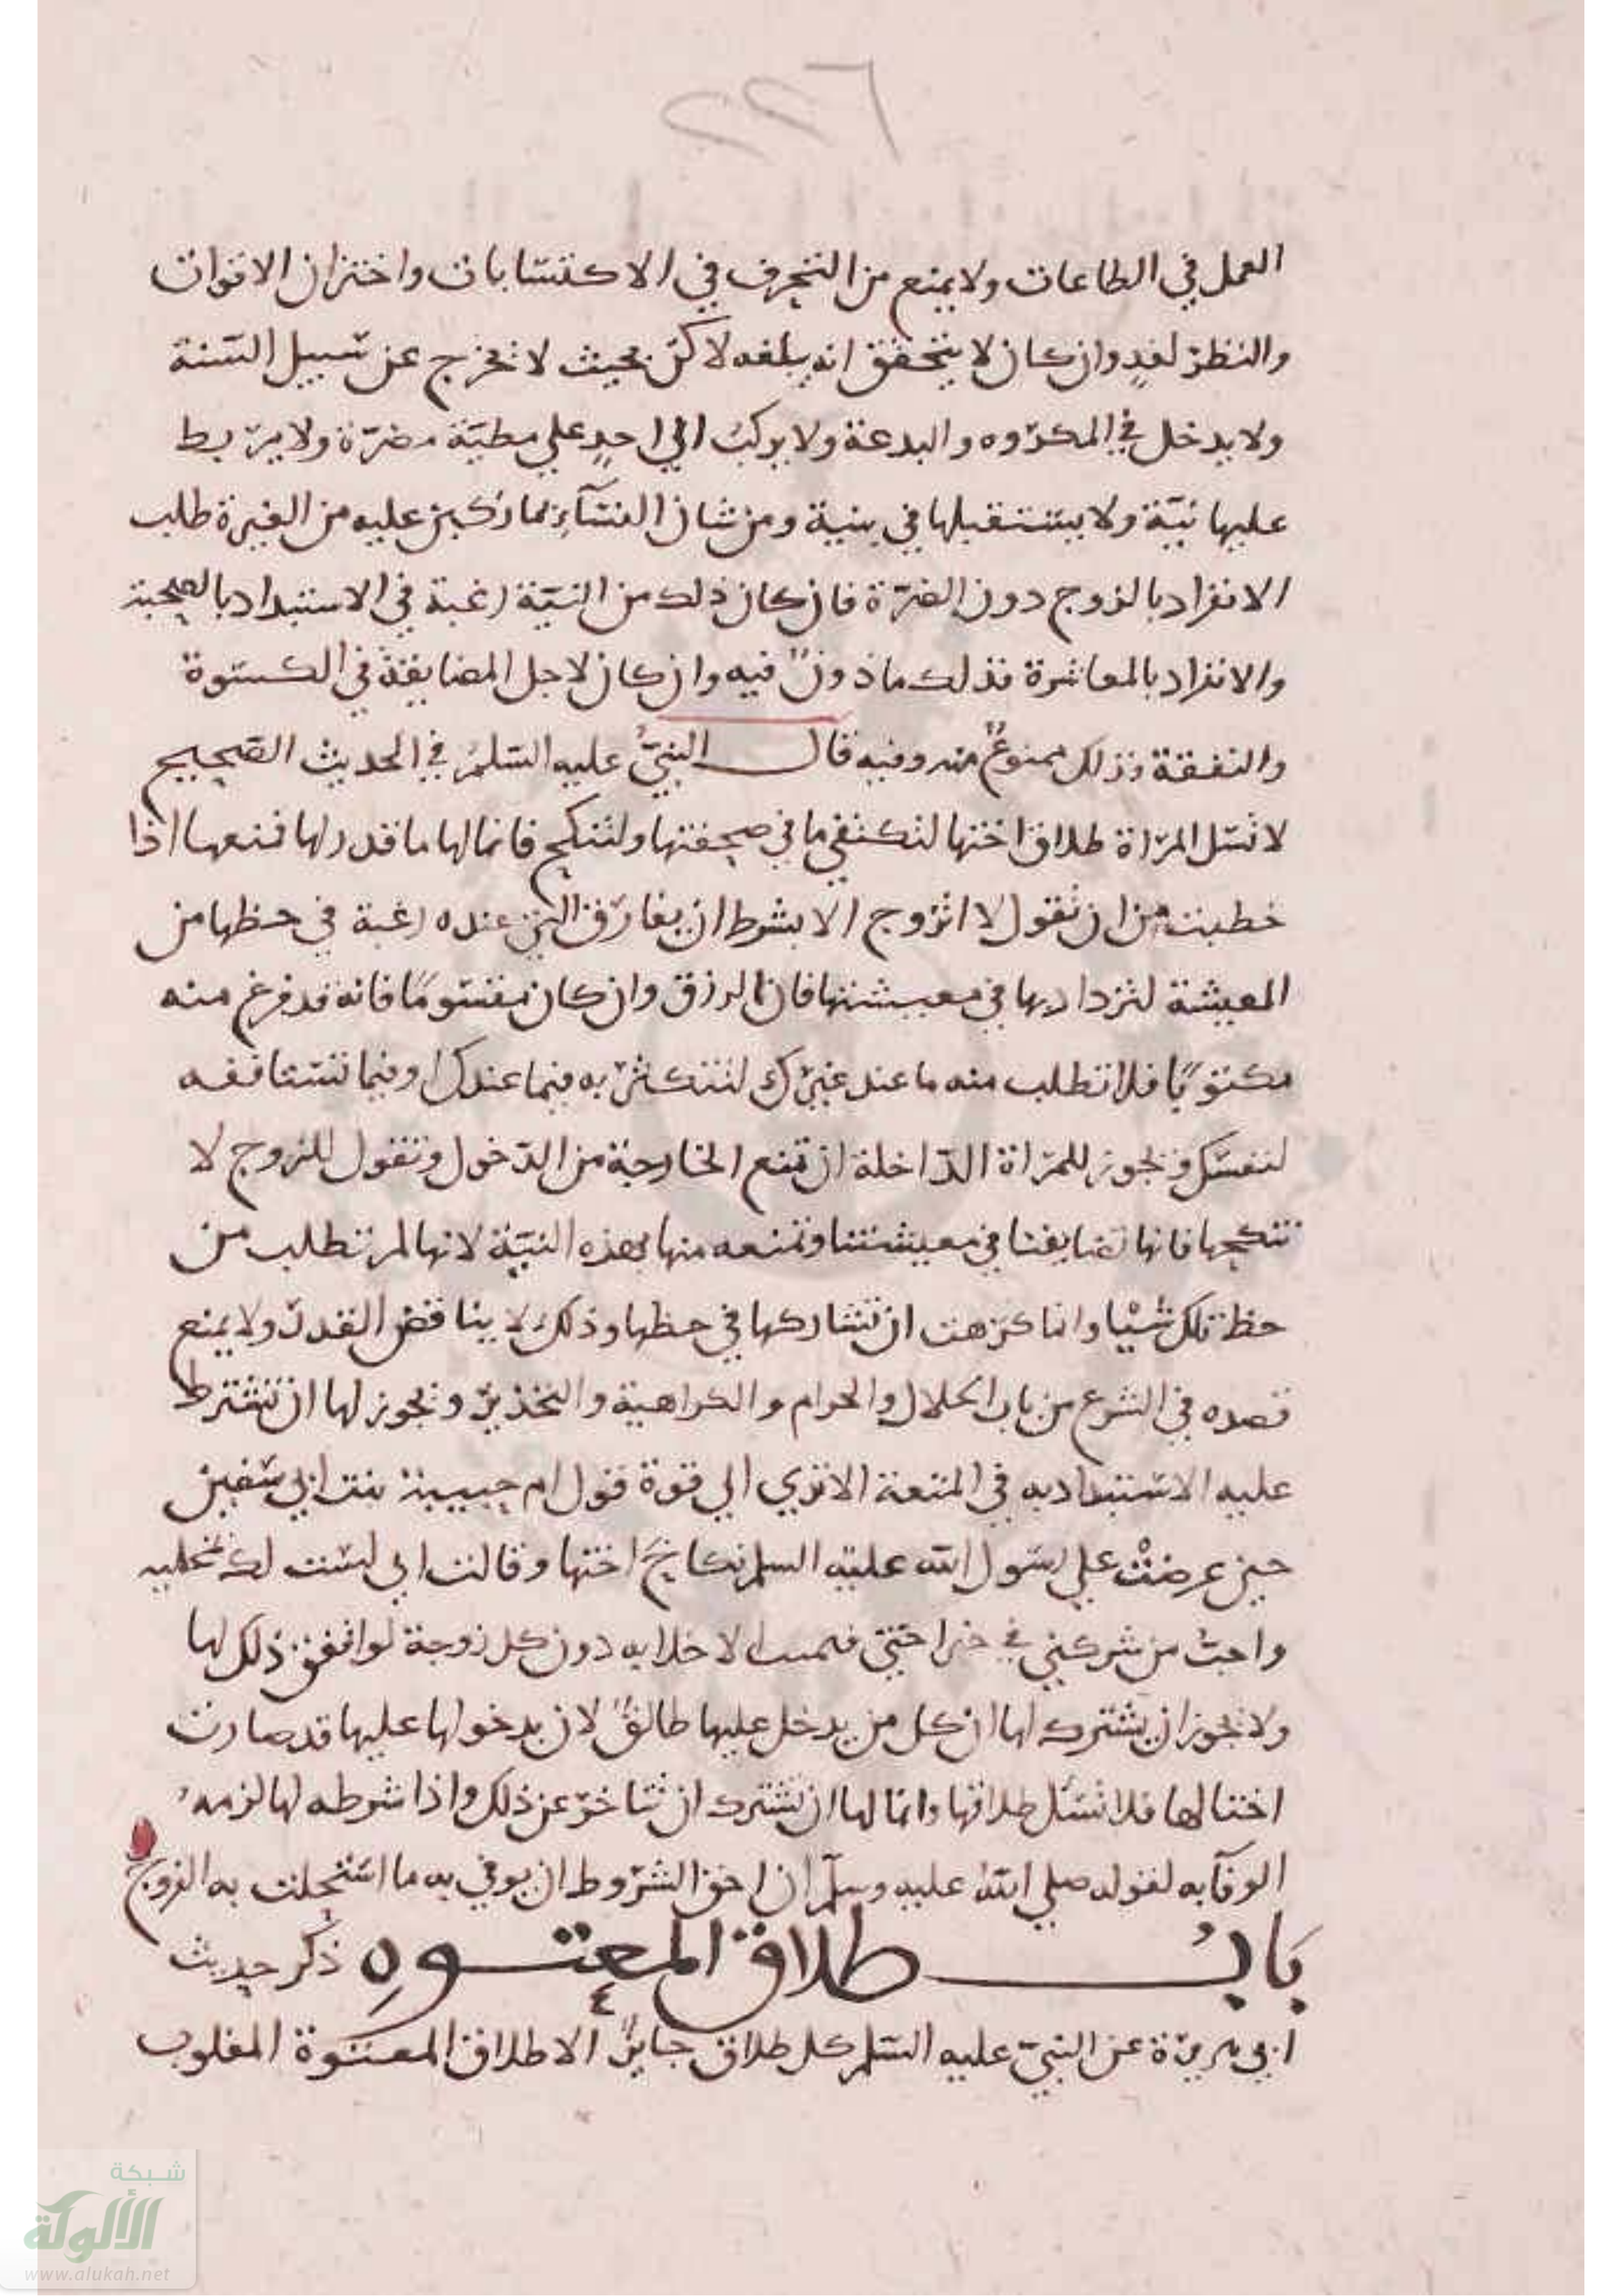 ٢٢٦
العمل في الطاعات ولا يمنع من التحرف في الاكتسابات واختزان الاقوات
والنظر لغدٍ وان كان لا يتحقق انه يبلغه لاكن بحيث لا يخرج عن سبيل السنة
ولا يدخل في المكروه والبدعة ولا يركب الي احدٍ علي مطية مضرة ولا يربط
عليها نية ولا يستقبلها في بنية ومن شان النسآء بما ركبن عليه من الغيرة طلب
الانفراد بالزوج دون الضرة فان كان ذلك من النية رغبة في الاستبداد بالصحبة
والانفراد بالمعاشرة فذلك ماذونٌ فيه وان كان لاجل المضايقة في الكسوة
والنفقة فذلك ممنوعٌ منه وفيه قال النبيُّ عليه السلم في الحديث الصحيح
لا تسل المراة طلاق اختها لتكتفي ما في صحفتها ولتنكح فانما لها ما قدر لها فمنعها اذا
خطبت من ان تقول لا اتزوج الا بشرط ان يفارق التي عنده رغبة في حظها من
المعيشة لتزداد بها في معيشتها فان الرزق وان كان مقسومًا فانه قد فرغ منه
مكتوبًا فلا تطلب منه ما عند غيرك لتتكثر به فيما عندك وفيما تستانفه
لنفسك ويجوز للمراة الداخلة ان تمنع الخارجة من الدخول وتقول للزوج لا
تنكحها فانها تضايقنا في معيشتنا وتمنعه منها بهذه النية لانها لم تطلب من
حظ تلك شيْا وانما كرهت ان تشاركها في حظها وذلك لا يناقض القدر ولا يمنع
قصده في الشرع من باب الحلال والحرام والكراهية والتحذير ويجوز لها ان تشترط
عليه الاستبداد به في المتعة الا تري الي قوة قول ام حبيبة بنت ابي سفين
حين عرضتْ علي رسول الله عليه السلم نكاح اختها وقالت اني لست لك بمخلية
واحبُّ من شركني في خير اختي فتمنت الاخلا به دون كل زوجة لو اتفق ذلك لها
ولا يجوز ان يشترك لها ان كل من يدخل عليها طالقٌ لان بدخولها عليها قد صارت
اختا لها فلا تسئل طلاقها وانما لها ان تشترك ان تتاخر عن ذلك واذا شرطه لها لزمه
الوفآ به لقوله صلي الله عليه وسلم ان احق الشروط ان يوفي به ما استحللت به الفروج
بَابُ طلاق المعتوه ذكر حديث
ابي هريرة عن النبي عليه السلم كل طلاق جايزٌ الا طلاق المعتوة المغلوب
شبكة
الألوكة
www.alukah.net